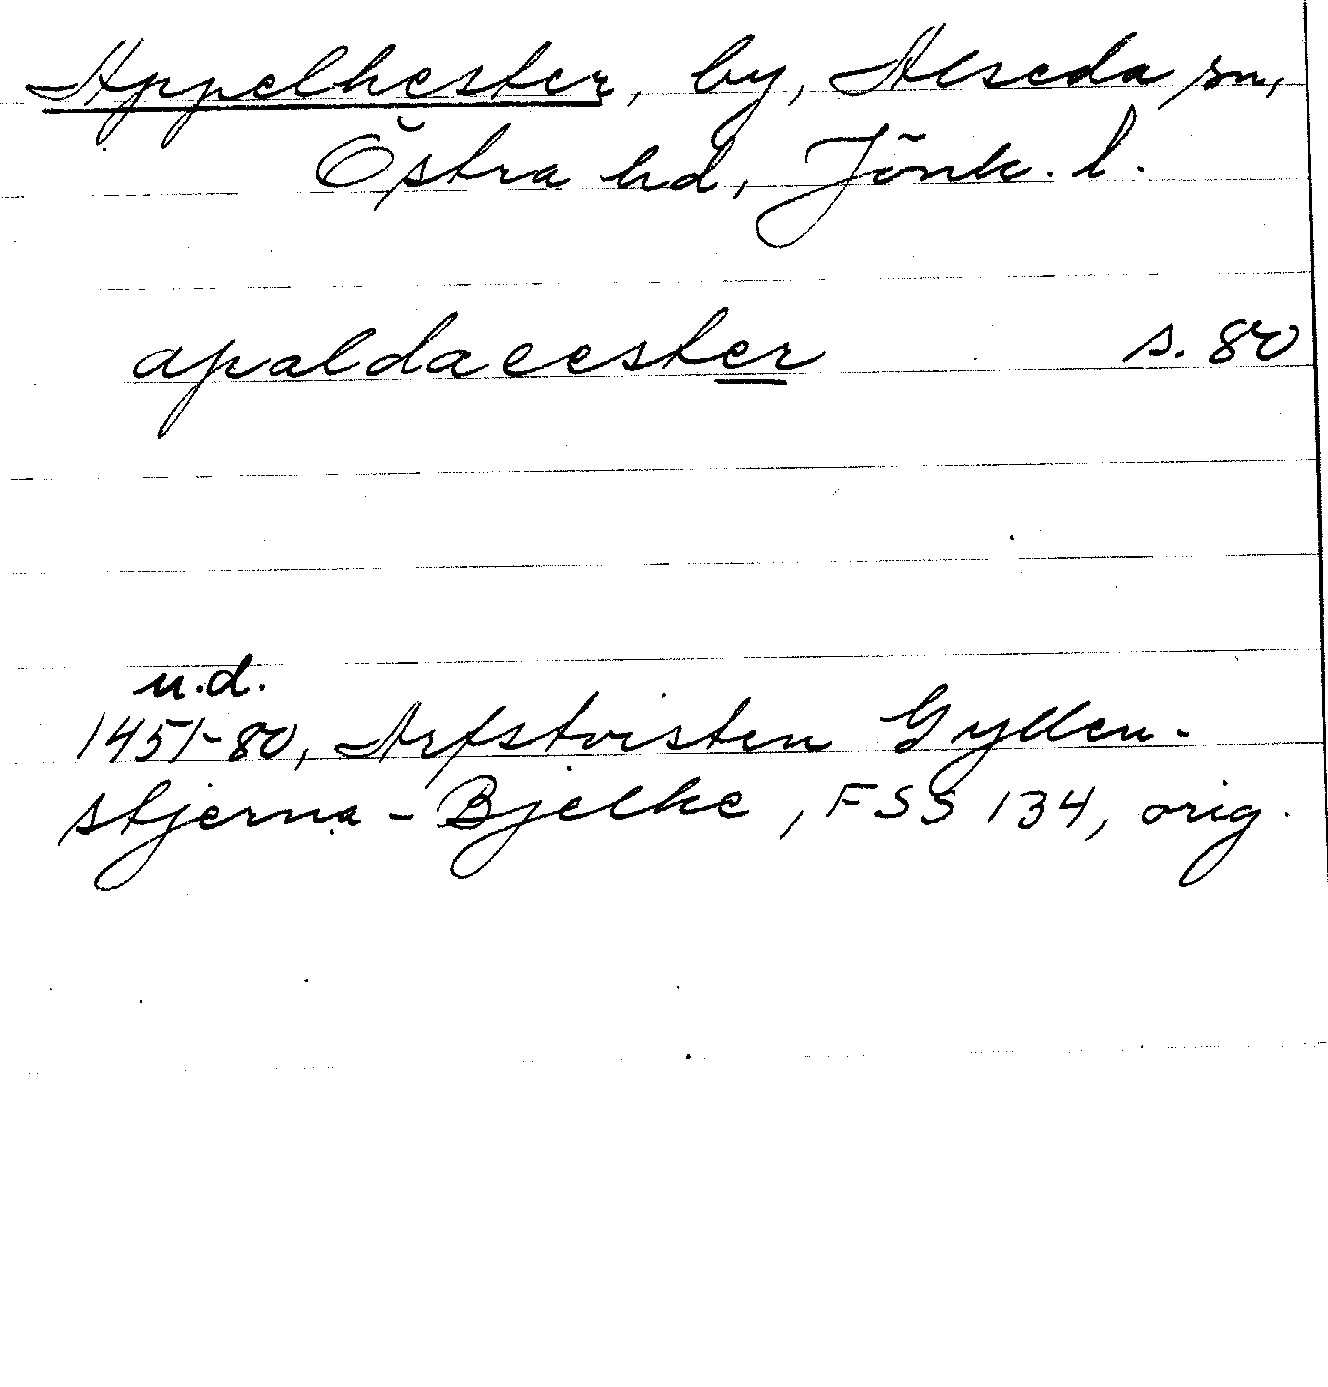 Appelhester, by, Alseda sn,
Östra hd, Jönk. l.
apaldaeester s. 80
u.d.
1451-80, Arfstvisten Gyllen-
stjerna - Bjelke, FSS 134, orig.